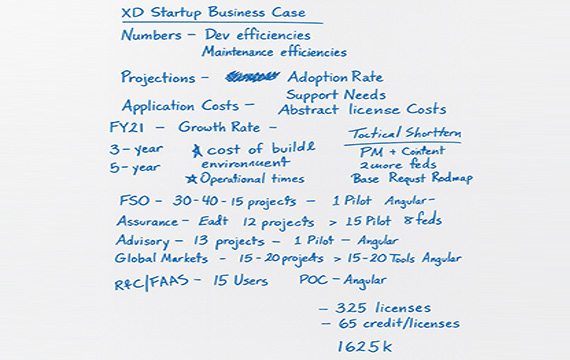 XD Startup Business Case
Numbers – Dev efficiencies
Maintenance efficiencies
Projections – Adoption Rate
Support Needs
Application Costs – Abstract license Costs
FY21 – Growth Rate –
3 – year ☆ cost of build
5 – year environment
☆ Operational times
Tactical Shortterm
PM + Content
2 more feds
Base Requst Rodmap
FSO – 30-40-15 projects – 1 Pilot Angular–
Assurance – Eadt 12 projects > 15 Pilot 8 feds
Advisory – 13 projects – 1 Pilot – Angular
Global Markets – 15-20 projects > 15-20 Tools Angular
R&C/FAAS – 15 Users POC – Angular
– 325 licenses
– 65 credit/licenses
1625k